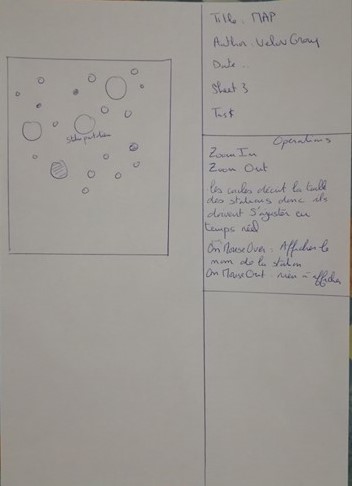 Title : MAP
Author : Velev Group
Date ..
Sheet 3
Task
Operations
Zoom In
Zoom Out
les cercles décrit la taille
des stations donc ils
doivent s'ajuster en
temps réel
On Mouse Over : Afficher le
nom de la station
On Mouse Out : rien à afficher